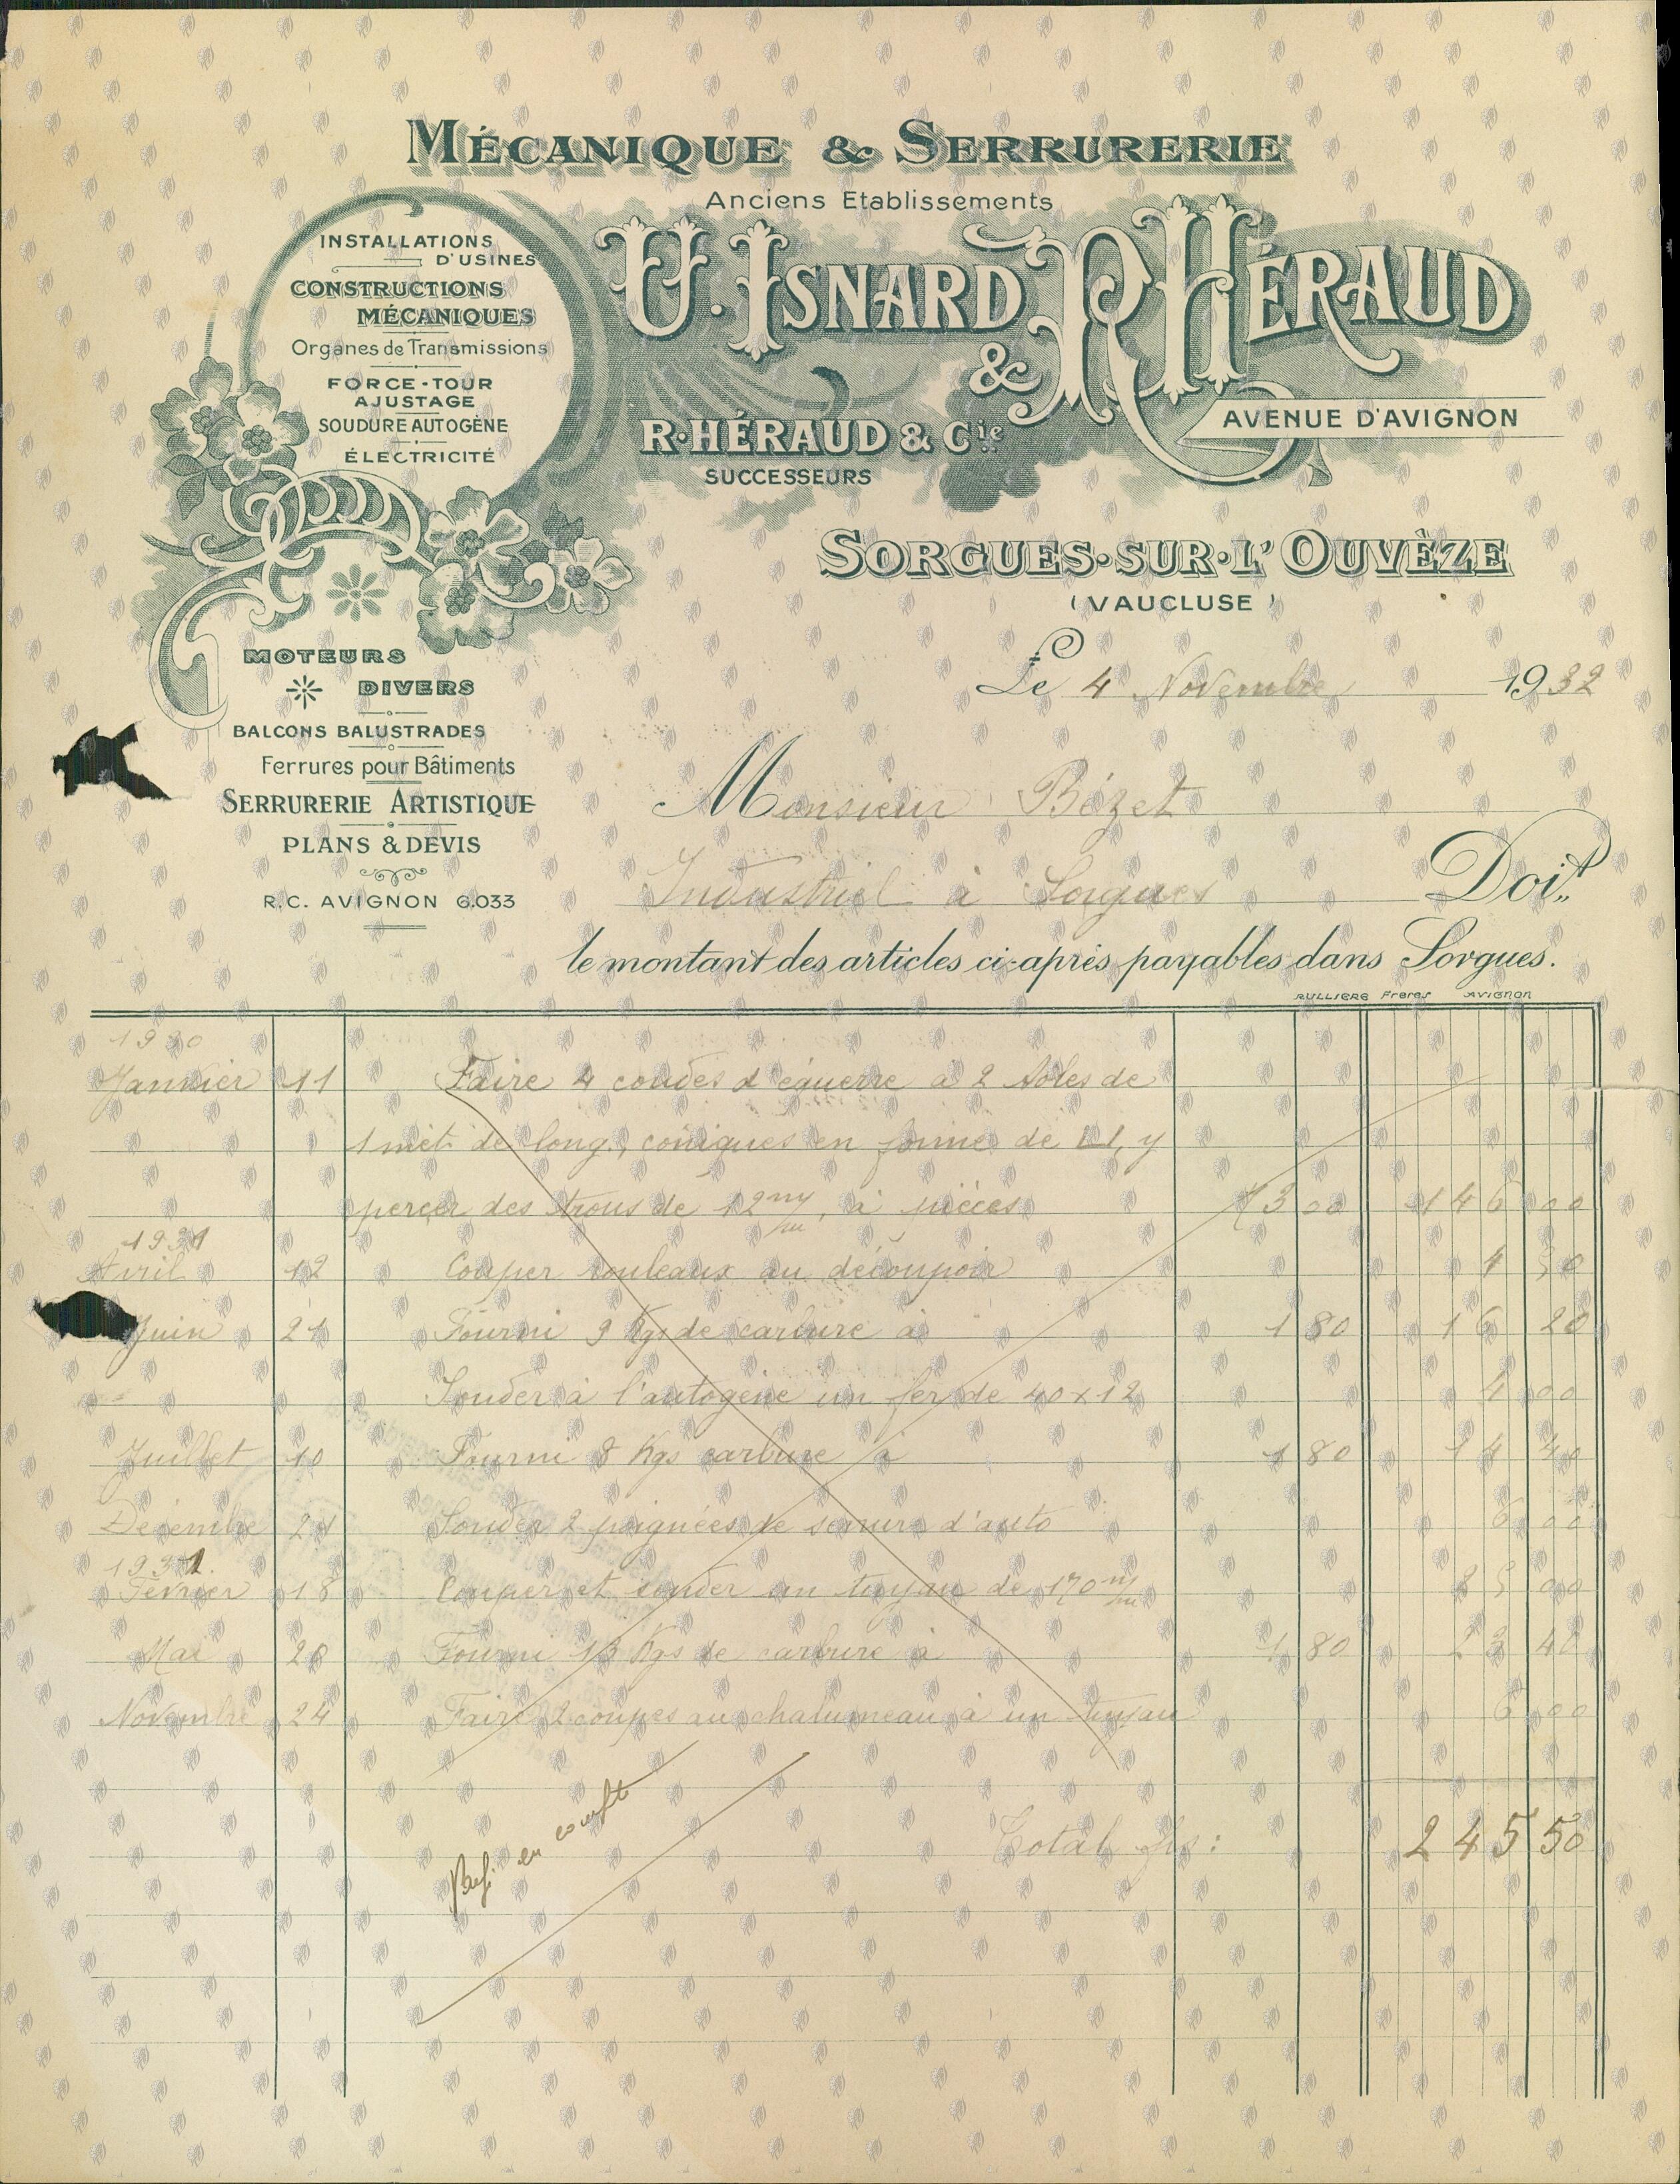 MÉCANIQUE & SERRURERIE
Anciens Etablissements
U. ISNARD & R. HÉRAUD
R. HÉRAUD & Cie
SUCCESSEURS
AVENUE D'AVIGNON
SORGUES-SUR-L'OUVÈZE
(VAUCLUSE)
INSTALLATIONS
D'USINES
CONSTRUCTIONS
MÉCANIQUES
Organes de Transmissions
FORCE-TOUR
AJUSTAGE
SOUDURE AUTOGÈNE
ÉLECTRICITÉ
MOTEURS
DIVERS
BALCONS BALUSTRADES
Ferrures pour Bâtiments
SERRURERIE ARTISTIQUE
PLANS & DEVIS
R.C. AVIGNON 6.033
Le 4 Novembre 1932
Monsieur Bézet
Industriel à Sorgues Doit
le montant des articles ci-après payables dans Sorgues.
RULLIERE Freres AVIGNON
1930
Janvier 11 Faire 4 coudes d'équerre à 2 tôles de
1 mèt. de long., coniques en forme de, y
percer des trous de 12 m/m, à pièces 73 00 146 00
1931
Avril 12 Couper rouleaux au découpoir 50
Juin 21 Fourni 9 Kgs de carbure à 1 80 16 20
Souder à l'autogène un fer de 40x12 4 00
Juillet 10 Fourni 8 Kgs carbure à 1 80 14 40
Décembre 21 Souder 2 poignées de serrure d'auto 6 00
Février 18 Couper et souder un tuyau de 170 m/m 25 00
Mai 20 Fourni 13 Kgs de carbure à 1 80 23 40
Novembre 24 Faire 2 coupes au chalumeau à un tuyau 6 00
Total frs : 245 50
en compte